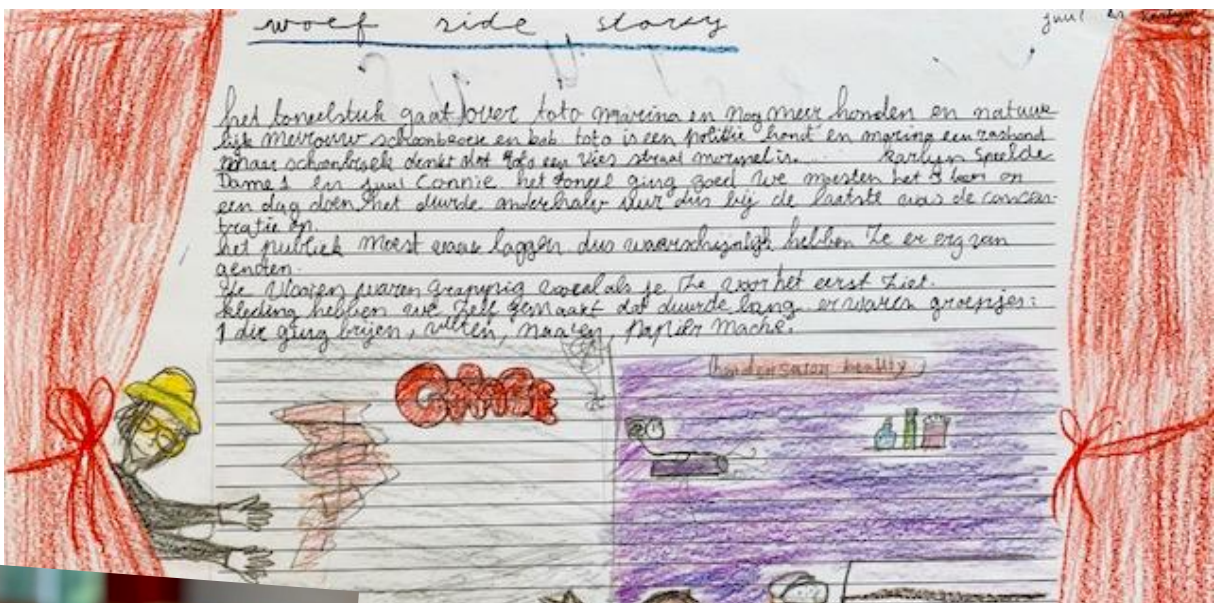 woef side story
juul en Karlijn
het toneelstuk gaat over toto marina en nog meer honden en natuur
lijk mevrouw schoonbeek en bob. toto is een politie hond en marina een rashond
maar schoonbeek denkt dat toto een vies straat mormel is. Karlijn speelde
Dame 1 en juul Connie het toneel ging goed we moesten het 3 keer op
een dag doen het duurde anderhalv uur dus bij de laatste was de concen-
tratie op.
het publiek moest vaak laggen dus waarschijnlijk hebben ze er erg van
genoten.
de vlooien waren grappig vooral als je ze voor het eerst ziet.
kleding hebben we zelf gemaakt dat duurde lang er waren groepjes:
1 die ging brijen, vilten, naaien, papier maché.
hondensalon beauty